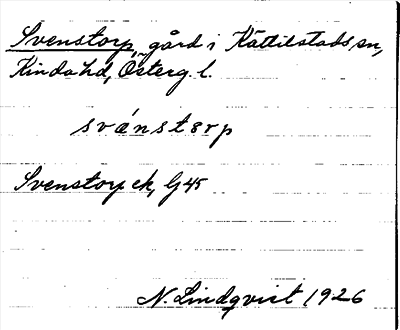 Svenstorp, gård i Kättilstads sn,
Kinda hd, Österg. l.
svánstərp
Svenstorp ek, G 45
N. Lindqvist 1926